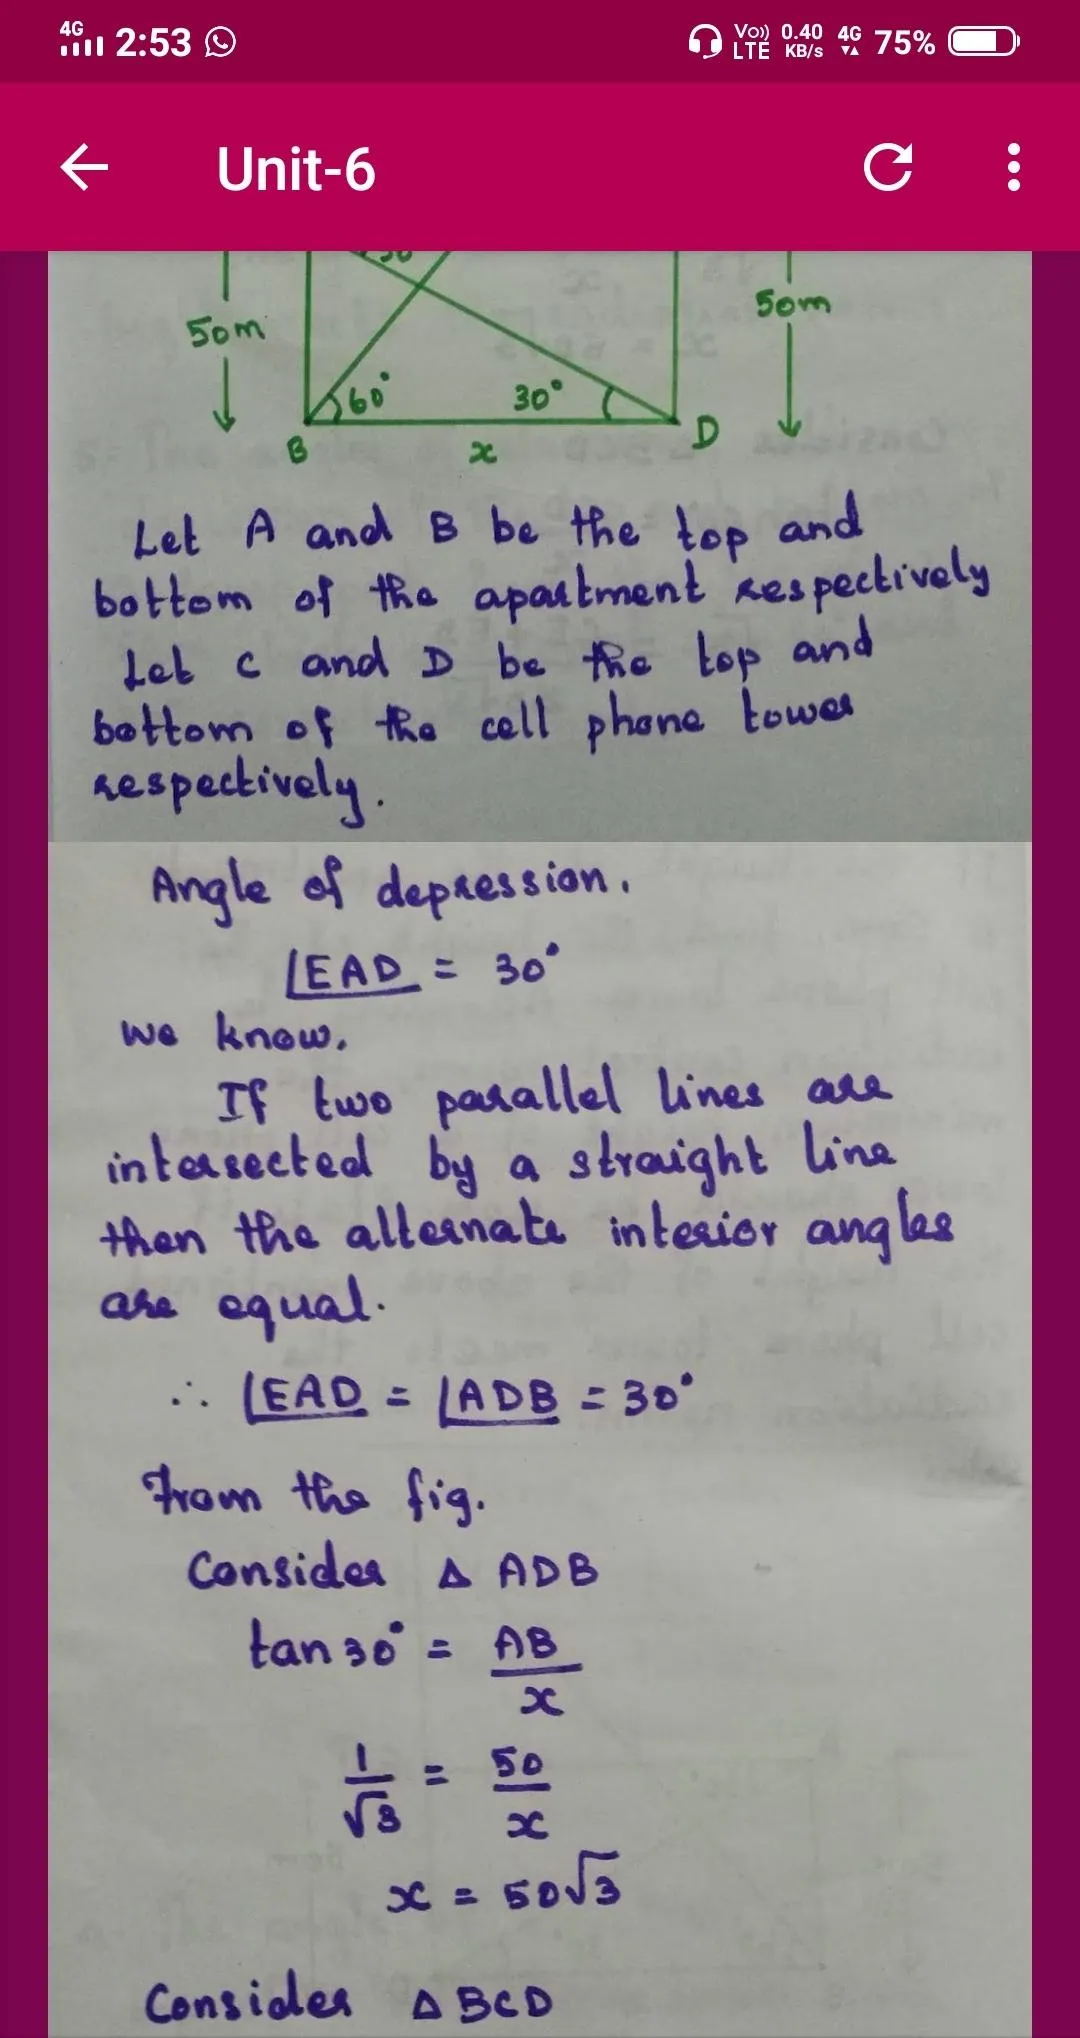 4G 2:53 Vo)) LTE 0.40 KB/s 4G 75%
Unit-6
30
50m
50m
60°
30°
B
x
D
Let A and B be the top and
bottom of the apartment respectively
Let C and D be the top and
bottom of the cell phone tower
respectively.
Angle of depression.
∠EAD = 30°
we know.
If two parallel lines are
intersected by a straight line
then the alternate interior angles
are equal.
∴ ∠EAD = ∠ADB = 30°
From the fig.
Consider Δ ADB
tan 30° = AB/x
1/√3 = 50/x
x = 50√3
Consider Δ BCD